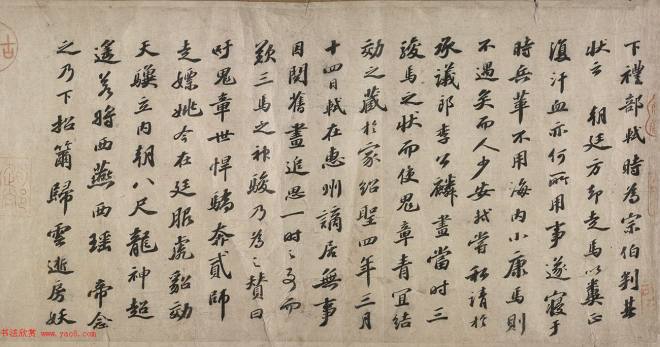 下禮部軾時為宗伯判其
狀云 朝廷方却走馬以糞正
復汗血亦何所用事遂寢于
時兵革不用海內小康馬則
不遇矣而人少安軾嘗私請於
承議郎李公麟畫當時三
駿馬之狀而使鬼章青宜結
効之藏於家紹聖四年三月
十四日軾在惠州謫居無事
因閱舊畫追思一時之事而
歎三馬之神駿乃為之贊曰
吁鬼章世悍驕奔貳師
走嫖姚今在廷服虎貂効
天驥立內朝八尺龍神超
遙若將西燕西瑤 帝念
之乃下招籋歸雲逝房妖
书法欣赏 www.yac8.com